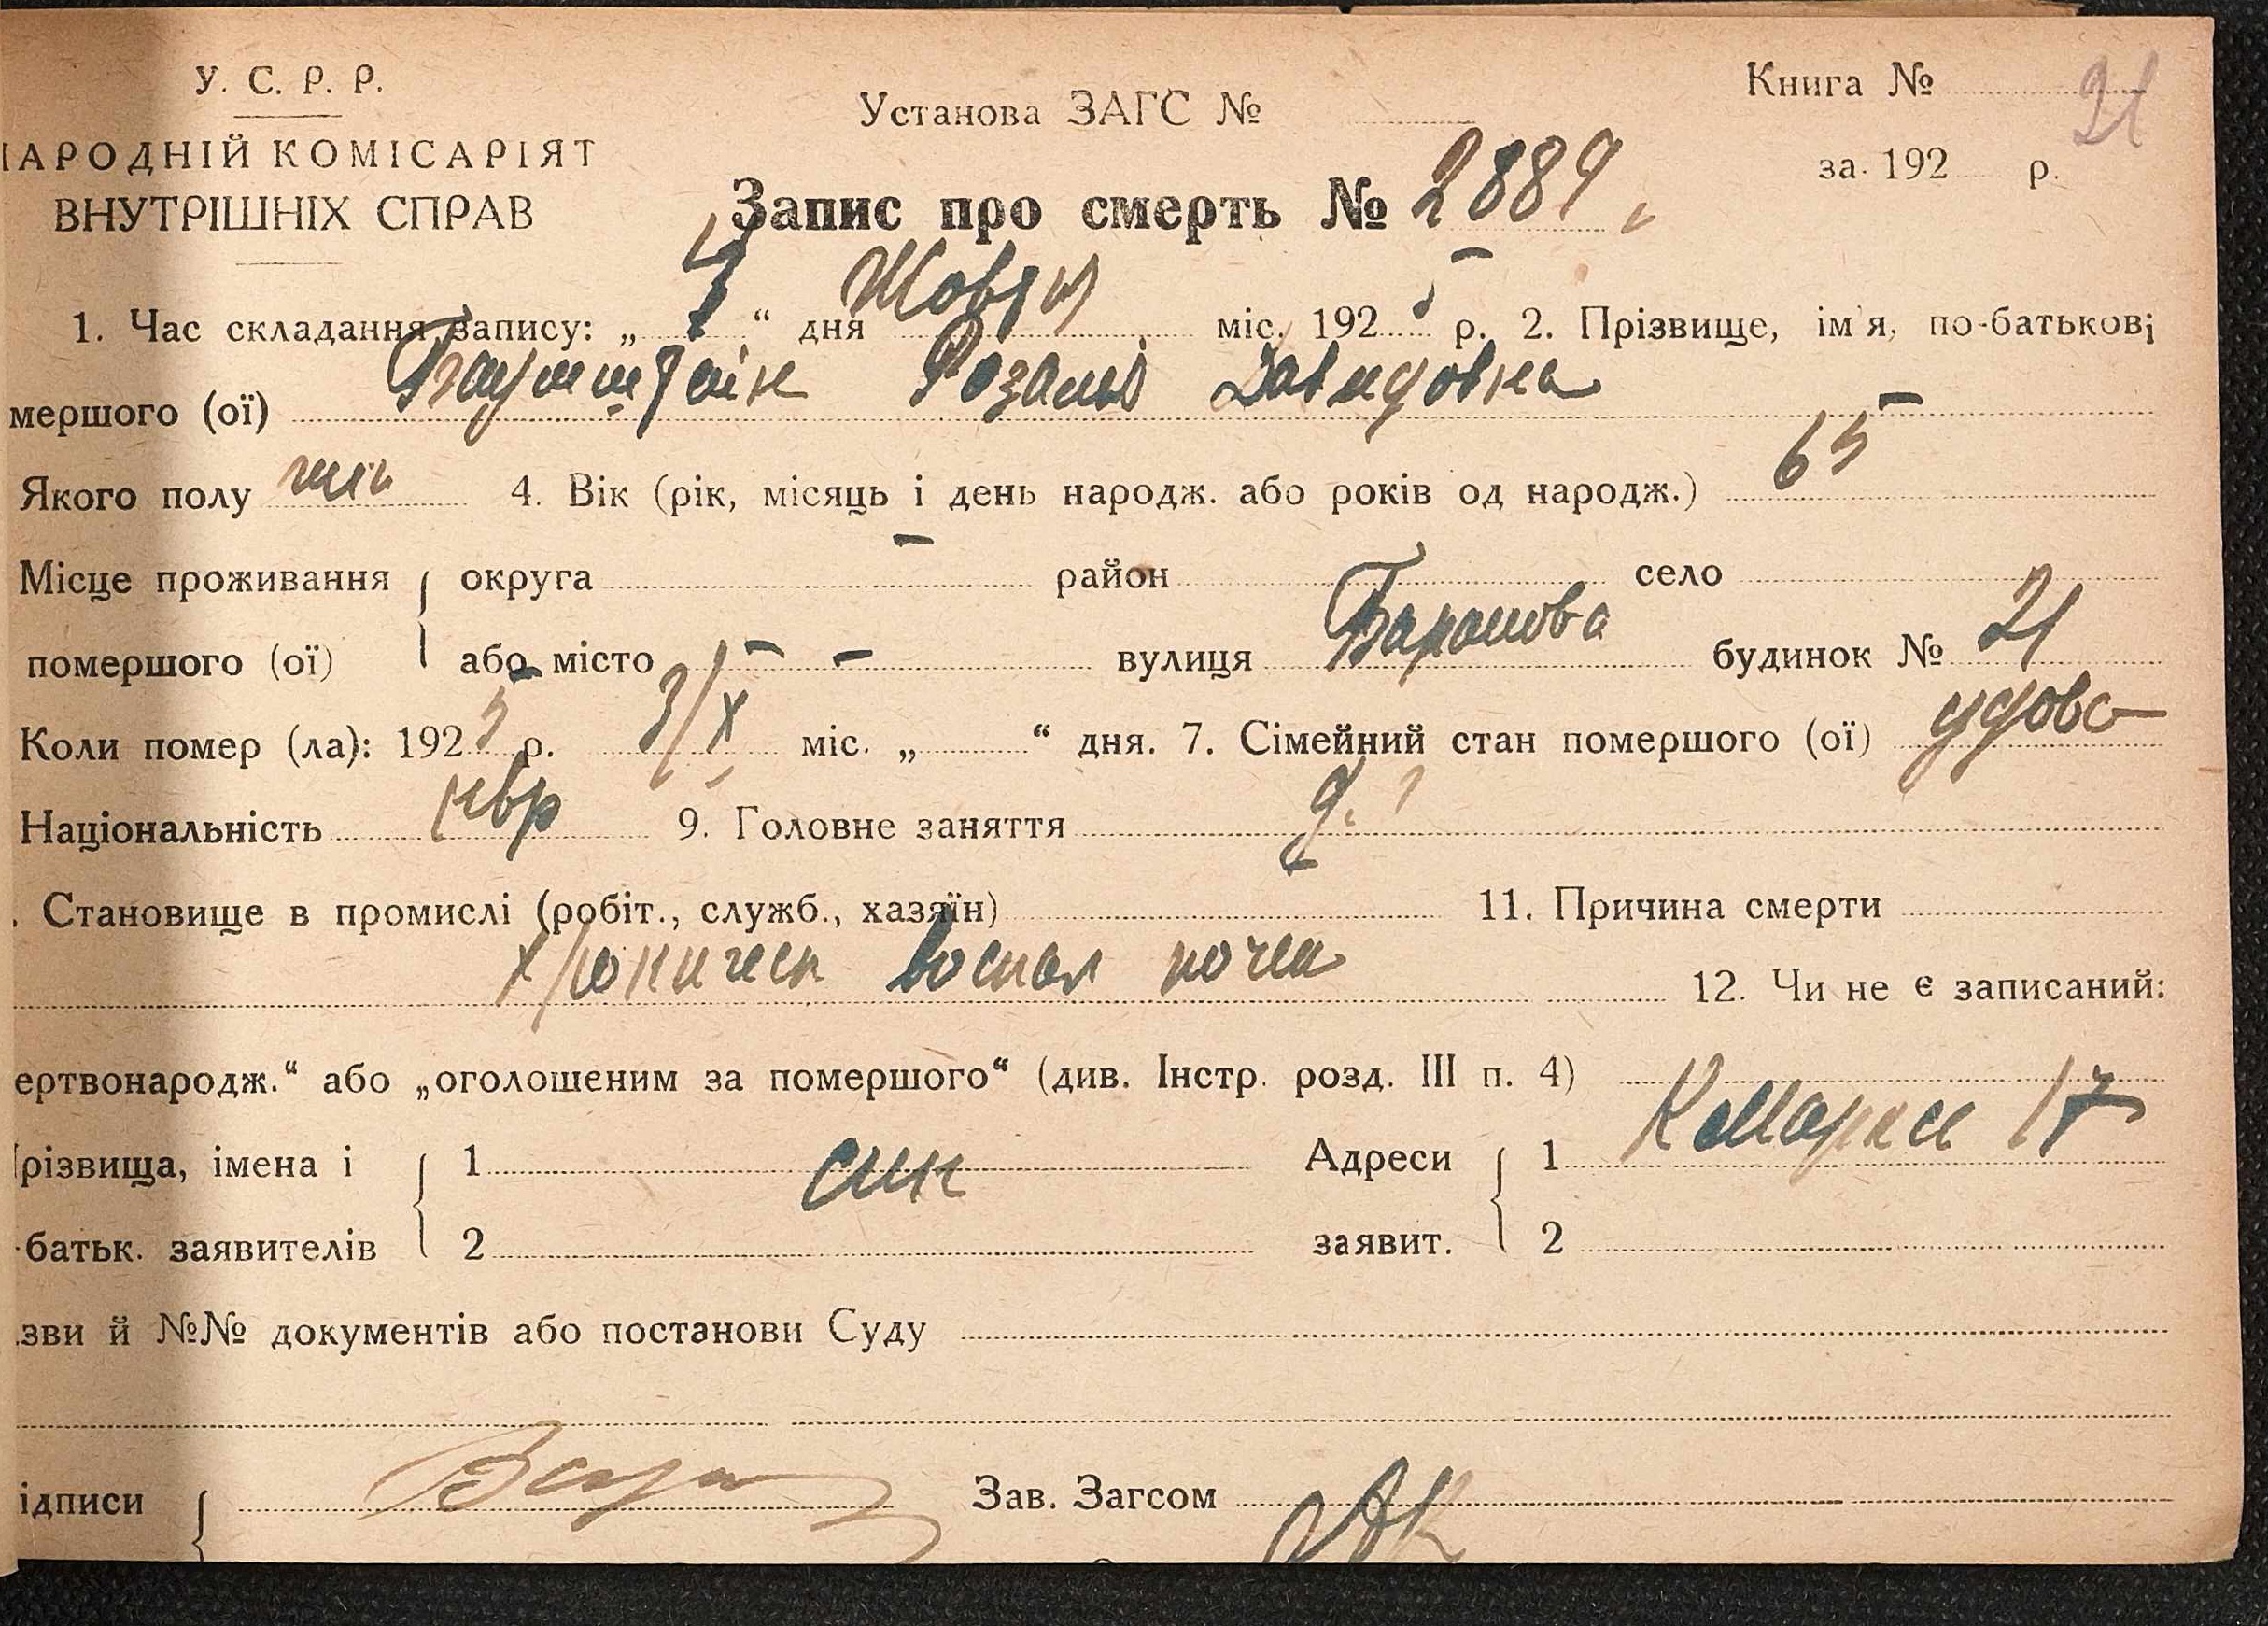 У. С. Р. Р.
НАРОДНІЙ КОМІСАРІЯТ
ВНУТРІШНІХ СПРАВ
Установа ЗАГС №
Книга № 21
за 192 р.
Запис про смерть № 2889
1. Час складання запису: „ “ дня Жовтн міс. 1925 р. 2. Прізвище, ім'я, по-батькові
мершого (ої) Бауштейн Розалія Давидовна
Якого полу жін 4. Вік (рік, місяць і день народж. або років од народж.) 65
Місце проживання округа – район село
помершого (ої) або місто – – вулиця Баранова будинок № 21
Коли помер (ла): 1925 р. 3/X міс. „ “ дня. 7. Сімейний стан помершого (ої) удова
Національність євр 9. Головне заняття д.
. Становище в промислі (робіт., служб., хазяїн) 11. Причина смерти
хроническ воспал почек 12. Чи не є записаний:
ертвонародж.“ або „оголошеним за помершого“ (див. Інстр. розд. III п. 4)
різвища, імена і 1 син Адреси 1 17
батьк. заявителів 2 заявит. 2
зви й №№ документів або постанови Суду
ідписи Зав. Загсом